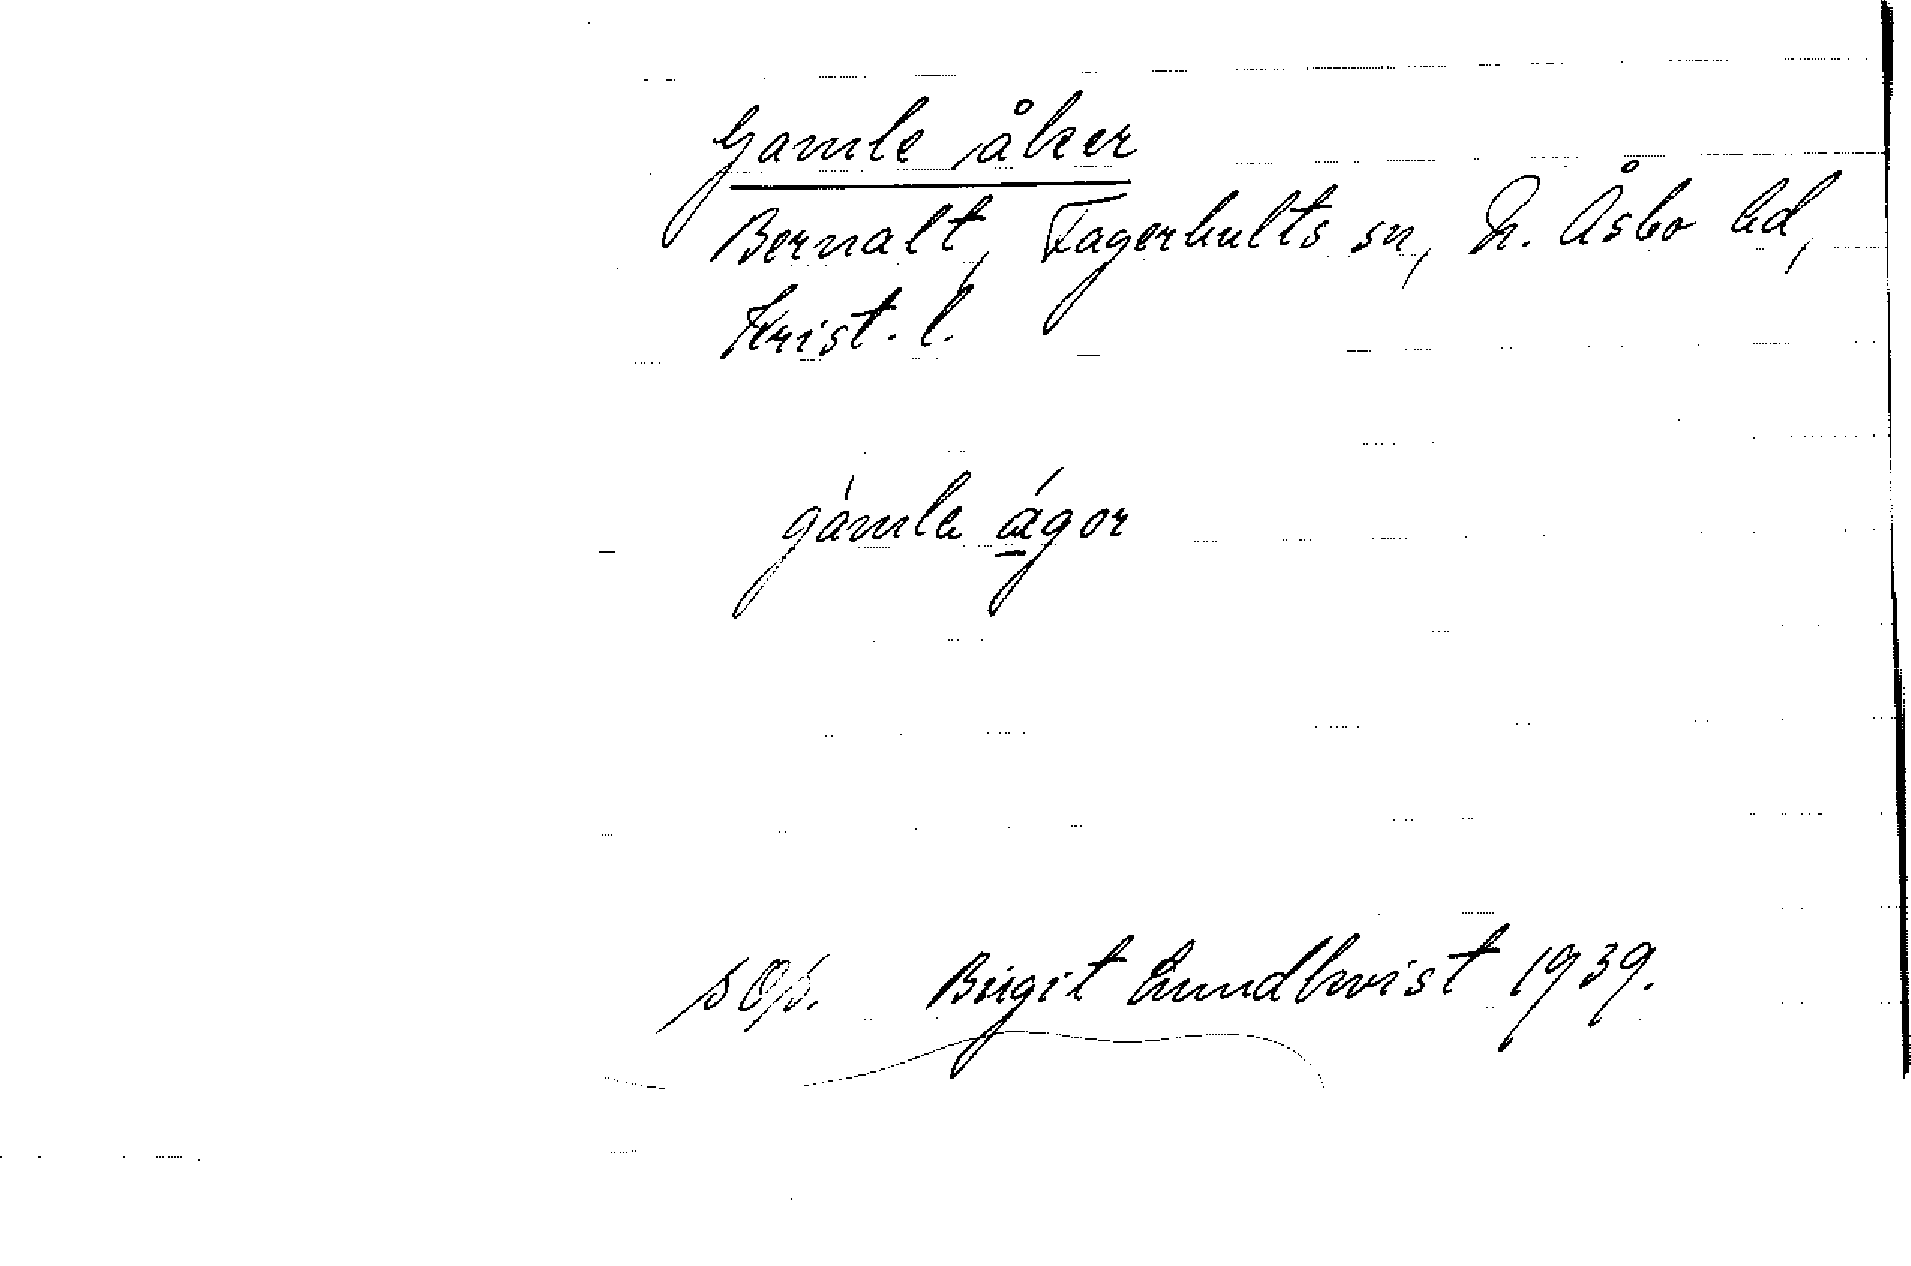 Gamle åker
Bernalt, Fagerhults sn, N. Åsbo hd,
Krist. l.
gámle ágor
Birgit Lundkvist 1939.